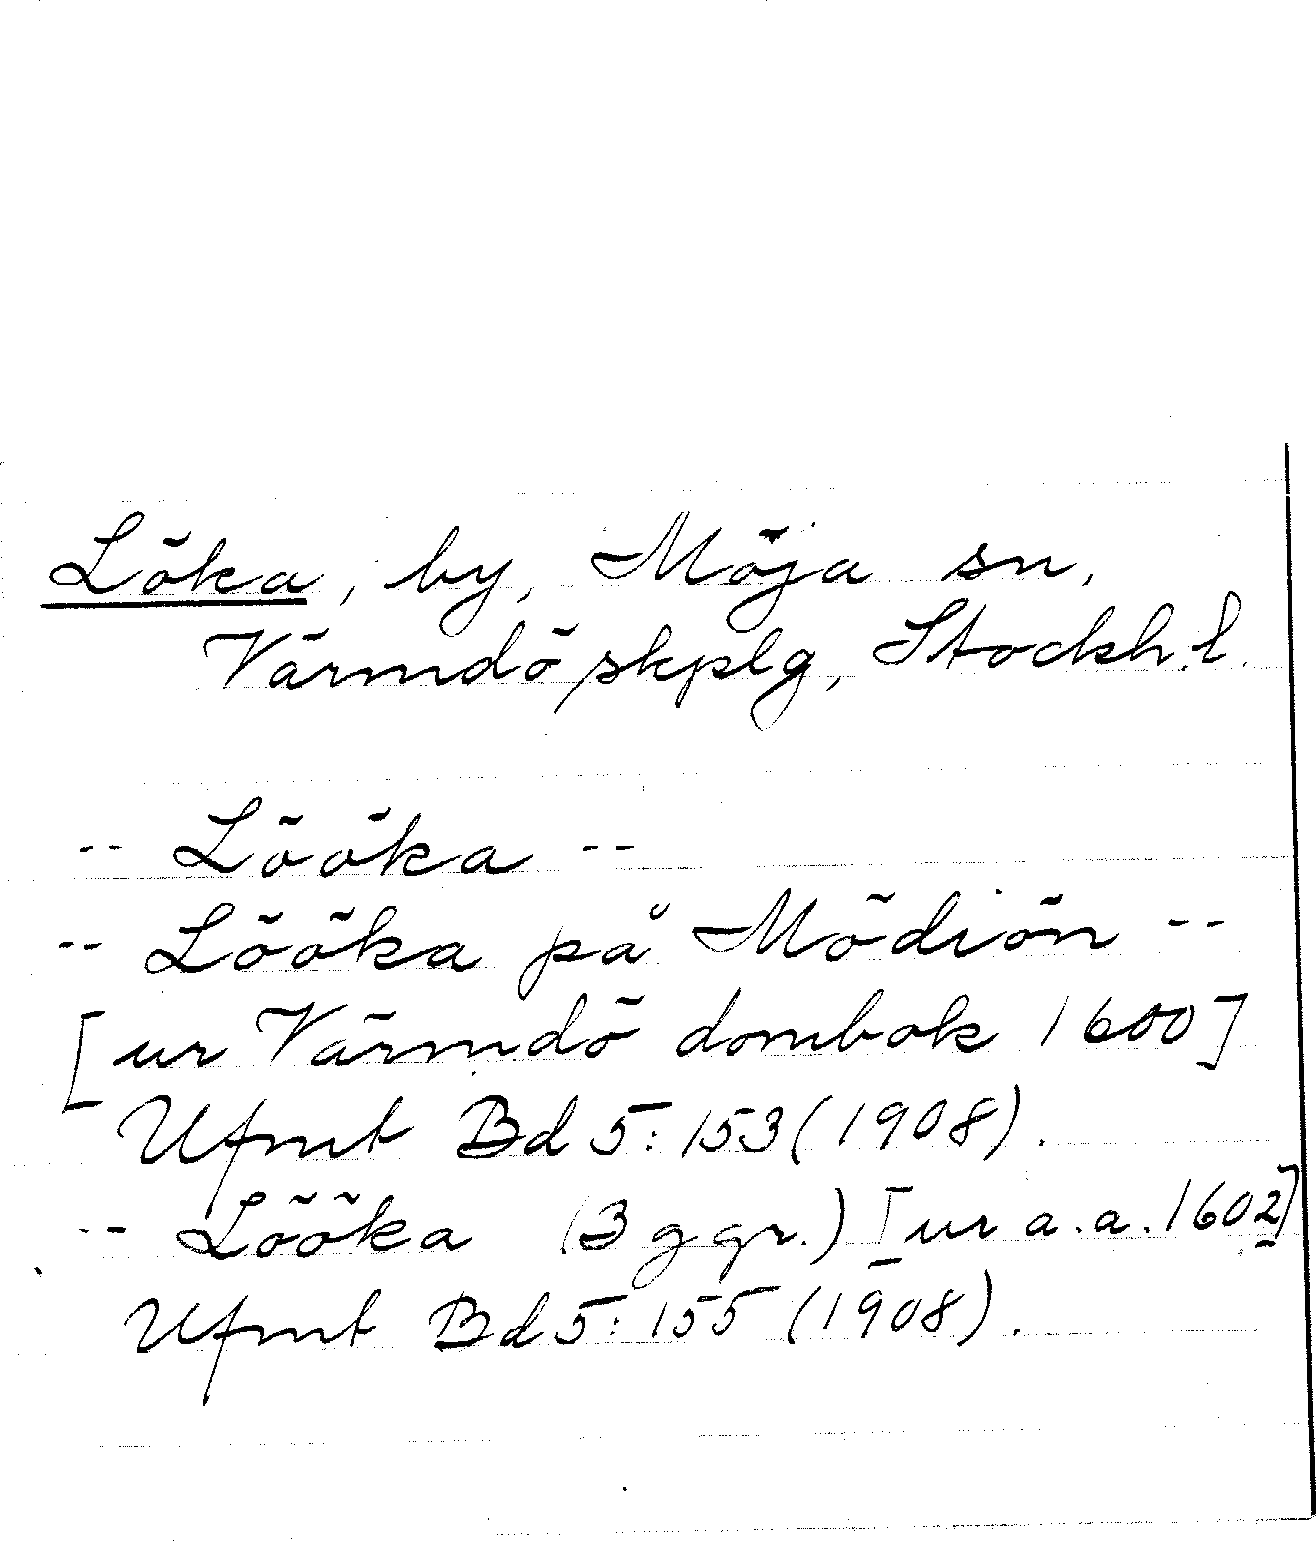 Löka, by, Möja sn,
Värmdö skplg, Stockh. l.
-- Lööka --
-- Lööka på Mödiön --
[ur Värmdö dombok 1600]
Ufmt Bd 5: 153 (1908).
-- Lööka (3 ggr.) [ur a.a. 1602]
Ufmt Bd 5: 155 (1908).